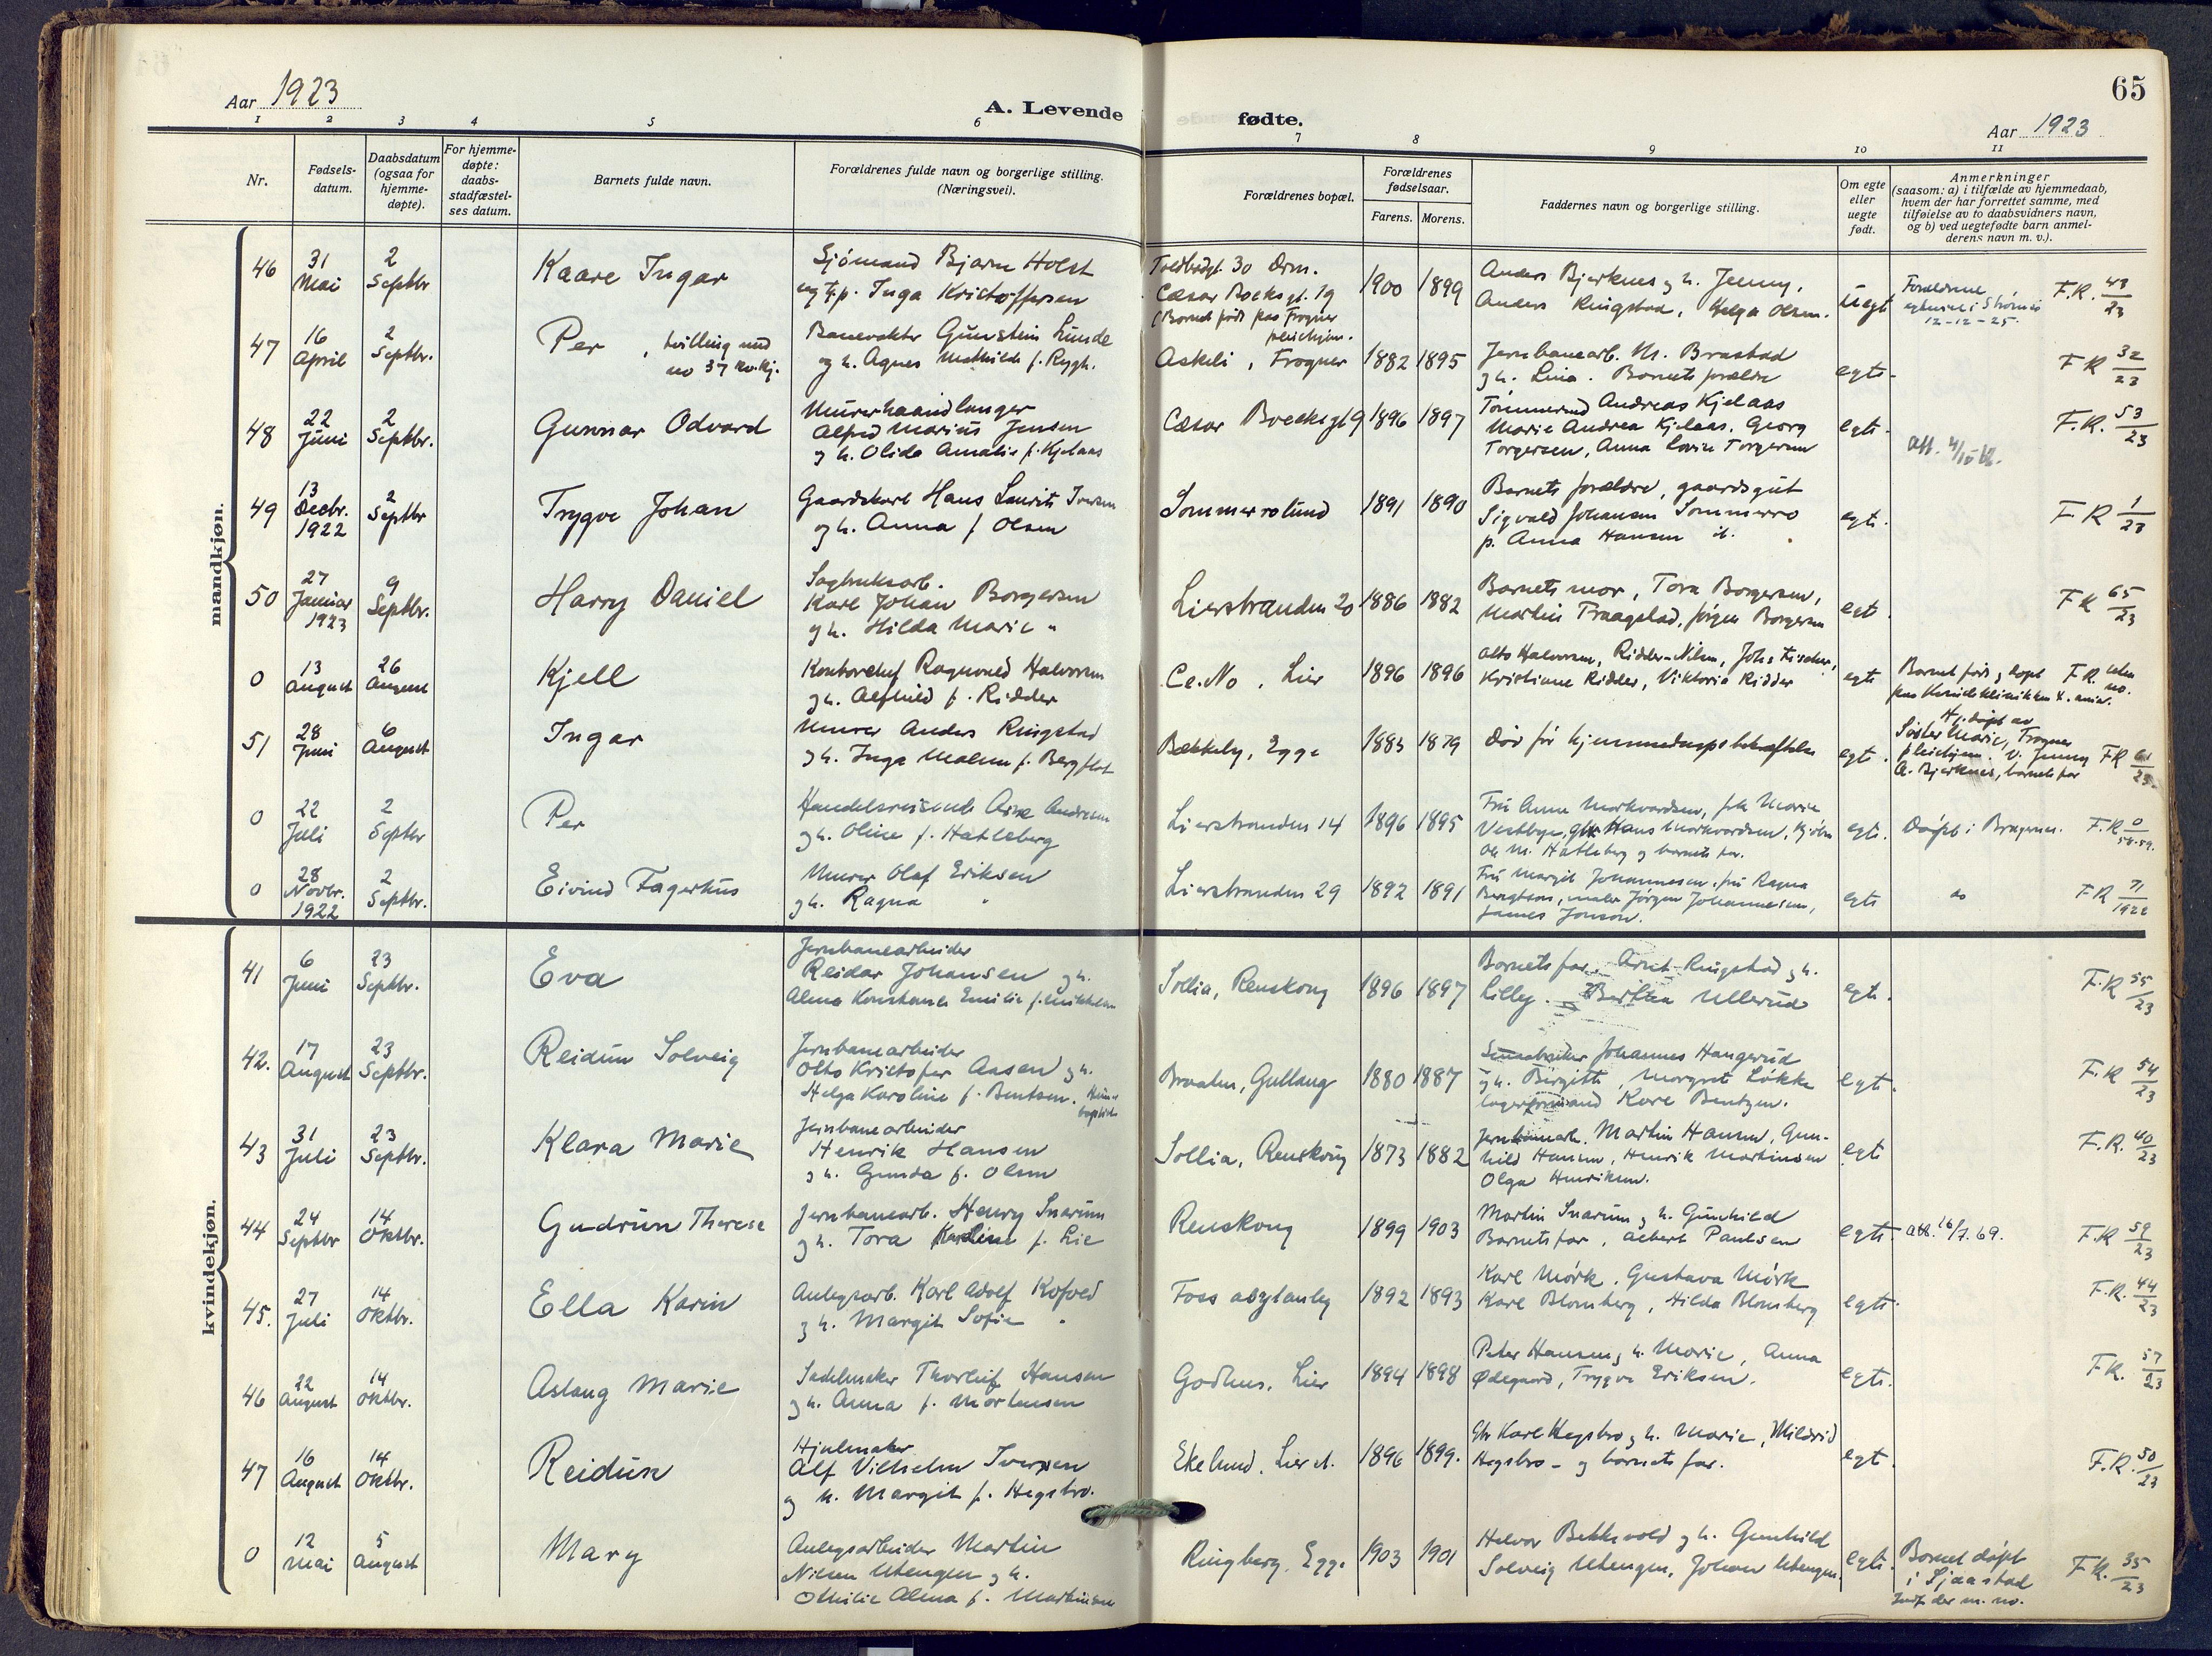 65
Aar 1923
A. Levende fødte.
Aar 1923
1 2 3 4 5 6 7 8 9 10 11
Nr.
Fødsels-
datum.
Daabsdatum
(ogsaa for
hjemme-
døpte).
For hjemme-
døpte:
daabs-
stadfæstel-
ses datum.
Barnets fulde navn.
Forældrenes fulde navn og borgerlige stilling.
(Næringsvei).
Forældrenes bopæl.
Forældrenes
fødselsaar.
Farens. Morens.
Faddernes navn og borgerlige stilling.
Om egte
eller
uegte
født.
Anmerkninger
(saasom: a) i tilfælde av hjemmedaab,
hvem der har forrettet samme, med
tilføielse av to daabsvidners navn,
og b) ved uegtefødte barn anmel-
derens navn m. v.).
mandkjøn.
46
31
Mai
2
Septbr
Kaare Ingar
Sjömand Bjarne Holst
og Inga Kristoffersen
Toldbodgt. 30 Drm.
Cæsar Boeksgt. 19
(Barnet født paa Frogner
pleiehjem.
1900 1899
Anders Bjerknes og h. Jenny,
Anders Ringstad, Helga Olsen.
Uegt
Forældrene
12-12-25.
F.R. 43/23
47
16
April
2
Septbr.
Per, tvilling med
no 37 kv.kj.
Banevokter Gunstein Lunde
og h. Agnes Mathilde f. Rygh.
Askeli, Frogner
1882 1895
Jernbanearb. M. Brastad
og h. Lina. Barnets forældre
egte.
F R 32/23
48
22
Juni
2
Septbr.
Gunnar Odvard
Murerhaandlanger
Alfred Marius Jensen
og h. Olida Amalie f. Kjelaas
Cæsar Boecksgt 9
1896 1897
Tømmermd Andreas Kjelaas
Marie Andrea Kjelaas, Georg
Torgersen, Anna Lovise Torgersen
egte.
F.R. 53/23
49
13
Decbr.
1922
2
Septbr
Trygve Johan
Gaardskarl Hans Laurits Iversen
og h. Anna f. Olsen
Sommerrolund
1891 1890
Barnets forældre, gaardsgut
Sigvald Johansen Sommerro
p. Anna Hansen d.
egte.
F.R 1/23
50
27
Januar
1923
9
Septbr.
Harry Daniel
Sagbruksarb.
Karl Johan Borgersen
og h. Hilda Marie "
Lierstranden 20
1886 1882
Barnets mor, Tora Borgersen,
Martin Traagstad, Jörgen Borgersen
egte.
F R 65/23
0
13
August
26
August
Kjell
Kontorchef Ragnvald Halvorsen
og h. Alfhild f. Ridder
Ce.No, Lier
1896 1896
Otto Halvorsen, Ridder-Nilsen, Johs Fischer,
Kristiane Ridder, Viktoria Ridder
egte
Barnet født og døpt
paa Kvindeklinikken
F R. uten
no.
51
28
Juni
6
August
Ingar
Murer Anders Ringstad
og h. Inga Malene f. Bergflot
Bækkeby, Egge
1883 1879
Død før hjemmedaapsbekræftelse
egte.
Hj. døpt av
Søster Marie, Frogner
pleiehjem. V. Jenny
A. Bjerknes, barnets far
FR 61/23
0
22
Juli
2
Septbr
Per
Handelsreisende Arne Andresen
og h. Oline f. Hatleberg
Lierstranden 14
1896 1895
Fru Anne Markvardsen, frk Marie
Vestbye, gbr Hans Markvardsen,
Ole M. Hatleberg og barnets far.
egte.
Døpt i Bragernes.
F.R 0/58-59.
0
28
Novbr.
1922
2
Septbr.
Eivind Fagerhus
Murer Olaf Eriksen
og h. Ragna "
Lierstranden 29
1892 1891
Fru Margit Johannesen, fru Ragna
Bengtson, maler Jörgen Johannesen,
James Jonson.
egte
do
F R 71/1922
kvindekjøn.
41
6
Juni
23
Septbr.
Eva
Jernbanearbeider
Reidar Johansen og h.
Alma Konstance Emilie f. Mikkelsen
Sollia, Renskoug
1896 1897
Barnets far. Arnt Ringstad og h.
Lilly. Bertha Ullerud
egte.
F.R 55/23
42.
17
August
23
Septbr.
Reidun Solveig
Jernbanearbeider
Otto Kristofer Aasen og h.
Helga Karoline f. Bentsen.
Braaten, Gullaug
1880 1887
Johannes Haugerud
og h. Birgitte, Margret Løkke
lagerformand Kare Bentzen.
egte.
F.R 54/23
43
31
Juli
23
Septbr.
Klara Marie
Jernbanearbeider
Henrik Hansen
og h. Gunda f. Olsen
Sollia, Renskoug
1873 1882
Jernbanearb. Martin Hansen, Gun-
hild Hansen, Henrik Martinsen
Olga Henriksen.
egte
F.R. 40/23
44
24
Septbr
14
Oktbr.
Gudrun Therese
Jernbanearb. Henry Snarum
og h. Tora Karoline f. Lie
Renskoug
1899 1903
Martin Snarum og h. Gunhild
Barnets far, Albert Paulsen
egte.
att. 16/7.69.
F.R 59/23
45.
27
Juli
14
Oktbr.
Ella Karin
Anlegsarb. Karl Adolf Kofoed
og h. Margit Sofie "
Foss asylanleg
1892 1893
Karl Mørk, Gustava Mørk
Karl Blomberg, Hilda Blomberg
egte.
F.R. 44/23
46
22
August
14
Oktbr.
Aslaug Marie
Sadelmaker Thorleif Hansen
og h. Anna f. Mortensen
Godhus, Lier
1894 1898
Peter Hansen og h. Marie, Anna
Ødegaard, Trygve Eriksen.
egte.
F R. 57/23
47
16
August
14
Oktbr.
Reidun
Hjulmaker
Alf Vilhelm Iversen
og h. Margit f. Hegsbro.
Ekelund, Lier st.
1896 1899.
Gbr Karl Hegsbro og h. Marie, Mildrid
Hegsbro - og barnets far.
egte.
F.R. 50/23
0
12
Mai
5
August
Mary
Anlegsarbeider Martin
Nilsen Utengen og h.
Othilie Alma f. Martinsen
Ringberg, Egge
1903 1901
Halvor Bekkevold og h. Gunhild
Solveig Utengen, Johan Utengen
egte.
Barnet døpt
i Sjaastad
F R. 35/23